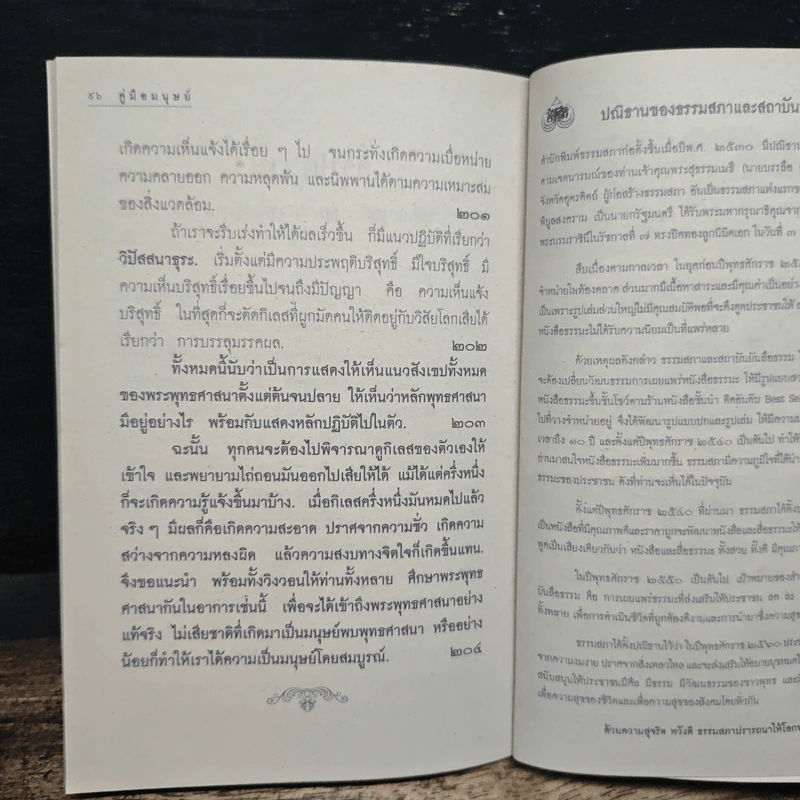 ๙๖ คู่มือมนุษย์
เกิดความเห็นแจ้งได้เรื่อย ๆ ไป จนกระทั่งเกิดความเบื่อหน่าย
ความคลายออก ความหลุดพ้น และนิพพานได้ตามความเหมาะสม
ของสิ่งแวดล้อม. ๒๐๑
ถ้าเราจะรีบเร่งทำให้ได้ผลเร็วขึ้น ก็มีแนวปฏิบัติที่เรียกว่า
วิปัสสนาธุระ. เริ่มตั้งแต่มีความประพฤติบริสุทธิ์ มีใจบริสุทธิ์ มี
ความเห็นบริสุทธิ์เรื่อยขึ้นไปจนถึงมีปัญญา คือ ความเห็นแจ้ง
บริสุทธิ์ ในที่สุดก็จะตัดกิเลสที่ผูกมัดคนให้ติดอยู่กับวิสัยโลกเสียได้
เรียกว่า การบรรลุมรรคผล. ๒๐๒
ทั้งหมดนี้นับว่าเป็นการแสดงให้เห็นแนวสังเขปทั้งหมด
ของพระพุทธศาสนาตั้งแต่ต้นจนปลาย ให้เห็นว่าหลักพุทธศาสนา
มีอยู่อย่างไร พร้อมกับแสดงหลักปฏิบัติไปในตัว. ๒๐๓
ฉะนั้น ทุกคนจะต้องไปพิจารณาดูกิเลสของตัวเองให้
เข้าใจ และพยายามไถ่ถอนมันออกไปเสียให้ได้ แม้ได้แต่ครึ่งหนึ่ง
ก็จะเกิดความรู้แจ้งขึ้นมาบ้าง. เมื่อกิเลสครึ่งหนึ่งมันหมดไปแล้ว
จริง ๆ มีผลก็คือเกิดความสะอาด ปราศจากความชั่ว เกิดความ
สว่างจากความหลงผิด แล้วความสงบทางจิตใจก็เกิดขึ้นแทน.
จึงขอแนะนำ พร้อมทั้งวิงวอนให้ท่านทั้งหลาย ศึกษาพระพุทธ
ศาสนากันในอาการเช่นนี้ เพื่อจะได้เข้าถึงพระพุทธศาสนาอย่าง
แท้จริง ไม่เสียชาติที่เกิดมาเป็นมนุษย์พบพุทธศาสนา หรืออย่าง
น้อยก็ทำให้เราได้ความเป็นมนุษย์โดยสมบูรณ์. ๒๐๔
ปณิธานของธรรมสภาและสถาบัน
สำนักพิมพ์ธรรมสภาก่อตั้งขึ้นเมื่อปีพ.ศ. ๒๕๓๐ มีปณิธาน
ตามเจตนารมณ์ของท่านเจ้าคุณพระสุธรรมเมธี (นายบรรลือ
จังหวัดอุตรดิตถ์ ผู้ก่อสร้างธรรมสภา อันเป็นธรรมสภาแห่งแรก
พิบูลสงคราม เป็นนายกรัฐมนตรี ได้รับพระมหากรุณาธิคุณจาก
พระบรมราชินีในรัชกาลที่ ๗ ทรงปิดทองลูกนิมิตเอก ในวันที่ ๓
สืบเนื่องตามกาลเวลา ในยุคก่อนปีพุทธศักราช
จำหน่ายในท้องตลาด ส่วนมากมีเนื้อหาสาระและมีคุณค่าเป็นอย่าง
เป็นเพราะรูปเล่มส่วนใหญ่ไม่มีคุณสมบัติพอที่จะดึงดูดประชาชนให้
หนังสือธรรมะไม่ได้รับความนิยมเป็นที่แพร่หลาย
ด้วยเหตุผลดังกล่าว ธรรมสภาและสถาบันบันลือธรรม
จะต้องเปลี่ยนวัฒนธรรมการเผยแพร่หนังสือธรรมะ ให้มีรูปแบบ
หนังสือธรรมะขึ้นชั้นโชว์ตามร้านหนังสือชั้นนำ ติดอันดับ Best
ไปที่วางจำหน่ายอยู่ จึงได้พัฒนารูปแบบปกและรูปเล่ม ให้มีความ
เวลาถึง ๑๐ ปี และตั้งแต่ปีพุทธศักราช ๒๕๔๐ เป็นต้นไป ทำให้
อ่านมาสนใจหนังสือธรรมะเพิ่มมากขึ้น ธรรมสภามีความภูมิใจที่ได้
ธรรมะของประชาชน ดังที่ท่านจะเห็นได้ในปัจจุบัน
ตั้งแต่ปีพุทธศักราช ๒๕๔๐ ที่ผ่านมา ธรรมสภาได้ตั้ง
เป็นหนังสือที่มีคุณภาพดีและราคาถูกจะพัฒนาหนังสือและสื่อธรรมะให้
พูดเป็นเสียงเดียวกันว่า หนังสือและสื่อธรรมะ ทั้งสวย ทั้งดี มีคุณ
ในปีพุทธศักราช ๒๕๕๐ เป็นต้นไป เป้าหมายของ
บันลือธรรม คือ การเผยแพร่ธรรมะที่ส่งเสริมให้ประชาชน ลด ละ
ทั้งหลาย เพื่อการดำเนินชีวิตที่ถูกต้องดีงามและการนำมาซึ่งความสุข
ธรรมสภาได้ตั้งปณิธานไว้ว่า ในปีพุทธศักราช ๒๕๖๐
จากความงมงาย ปราศจากสิ่งเหลวไหล และจะส่งเสริมให้อบายมุขหมด
สนับสนุนให้ประชาชนมีศีล มีธรรม มีวัฒนธรรมของชาวพุทธ
เพื่อความสุขของชีวิตและเพื่อความสุขของสังคมโดยทั่วกัน
ด้วยความสุจริต หวังดี ธรรมสภาปรารถนาให้โลก